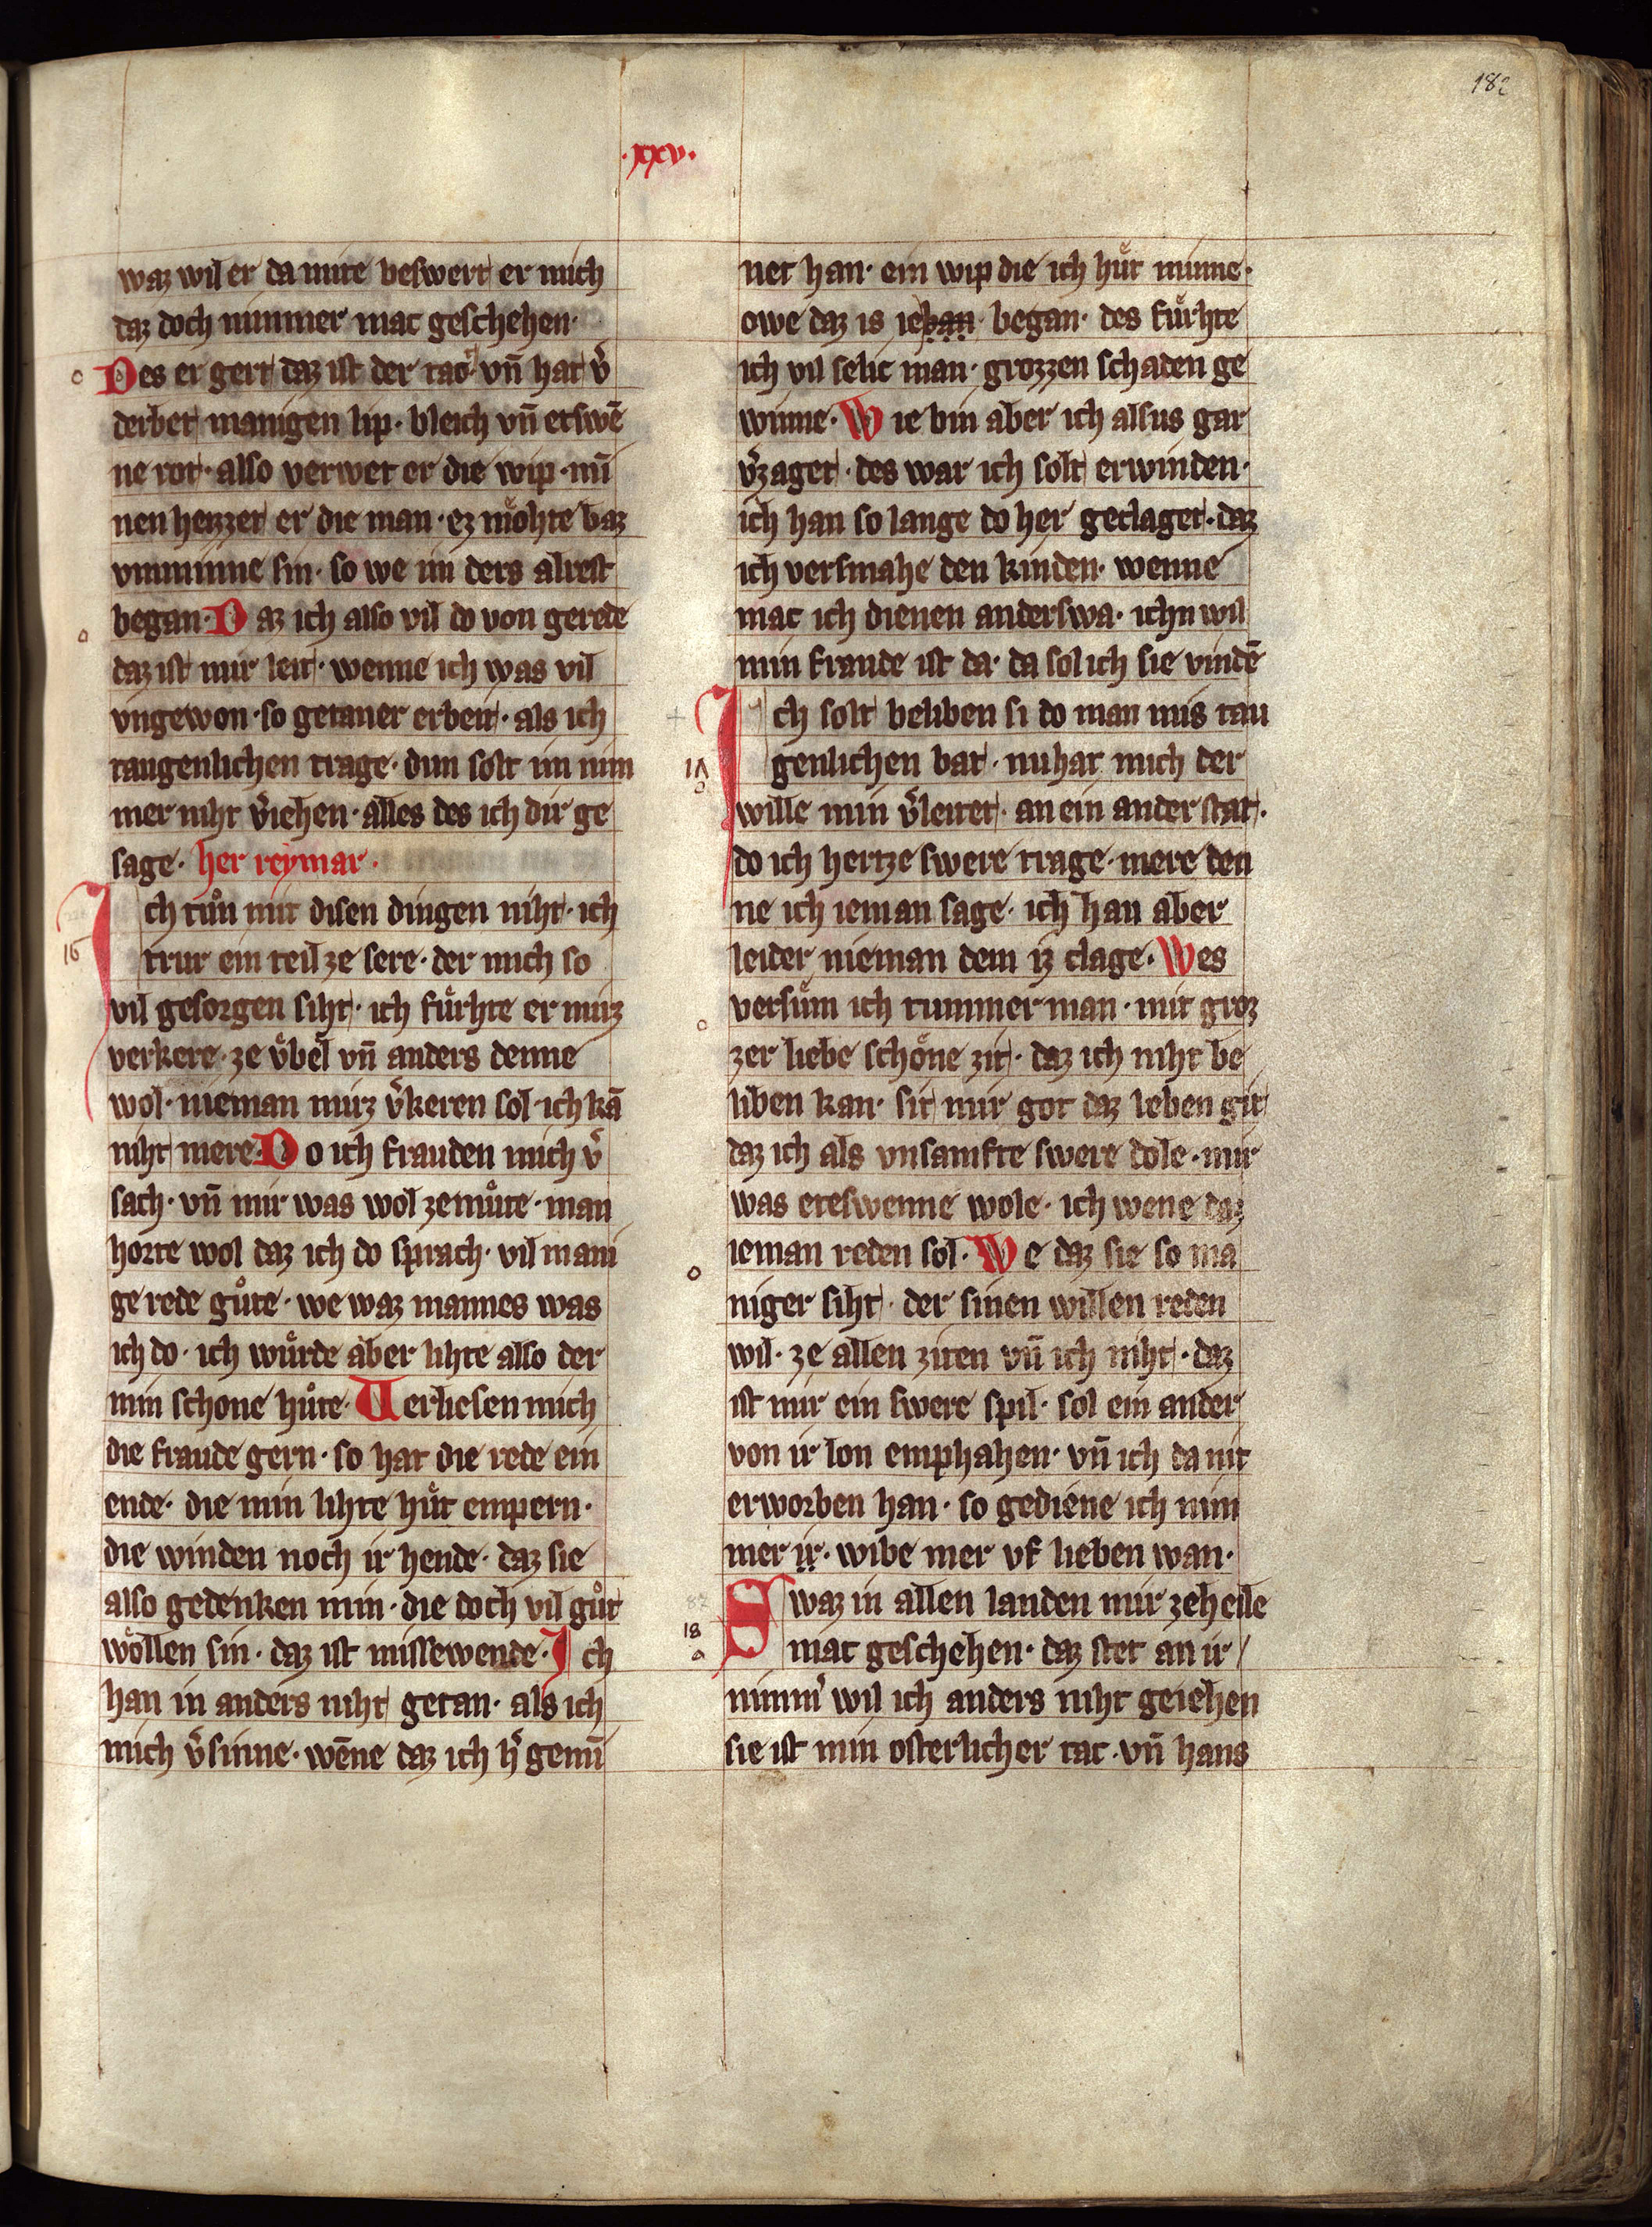 182
.xxv.
waz wil er da mite beswert er mich
daz doch nimmer mac geschehen·
Des er gert daz ist der tao· vn̄ hat v͛
derbet manigen lip· bleich vn̄ etswē
ne rot· also verwet er die wip· mī
nen heizzet er die man· ez moͤhte baz
vnminne sin· so we im ders alrest
began· Daz ich also vil do von gerede
daz ist mir leit· wenne ich was vil
vngewon· so getaner erbeit· als ich
taugenlichen trage· dun solt im nim
mer niht v͛iehen· alles des ich dir ge
sage· her reymar·
Ich tuͦn mit disen dingen niht· ich
trur ein teil ze sere· der mich so
vil gesorgen siht· ich fuͤrhte er miz
verkere· ze vͤbel vn̄ anders denne
wol· nieman mirz v͛keren sol· ich kā
niht mere· Do ich frauden mich v͛
sach· vn̄ mir was wol ze muͦte· man
horte wol daz ich do sprach· vil mani
ge rede guͦte· we waz mannes was
ich do· ich wuͤrde aber lihte also der
min schone huͦte· Verliesen mich
die fraude gern· so hat die rede ein
ende· die min lihte huͤt empern·
die winden noch ir hende· daz sie
also gedenken min· die doch vil guͦt
woͤllen sin· daz ist missewende· Ich
han in anders niht getan· als ich
mich v͛sinne· wēne daz ich h͛ gemī
net han· ein wip die ich huͤt minne·
owe daz is iehan· began· des fuͤrhte
ich vil selic man· grozzen schaden ge
winne· Wie bin aber ich alsus gar
v͛zaget· des war ich solt erwinden·
ich han so lange do her geclaget· daz
ich versmahe den kinden· wenne
mac ich dienen anderswa· ichn wil
min fraude ist da· da sol ich sie vindē
Ich solt beliben si do man mis tau
genlichen bat· nu hat mich der
wille min v͛leitet· an ein ander stat·
do ich hertze swere trage· mere den
ne ich ieman sage· ich han aber
leider nieman dem iz clage· Wes
versuͦm ich tummer man· mit groz
zer liebe schoͤne zit· daz ich niht be
liben kan· sit mir got daz leben git
daz ich als vnsamfte swere dole· mir
was eteswenne wole· ich wene daz
ieman reden sol· We daz sie so ma
niger siht· der sinen willen reden
wil· ze allen ziten vn̄ ich niht· daz
ist mir ein swere spil· sol ein ander
von ir lon emphahen· vn̄ ich da mit
erworben han· so gediene ich nim
mer ir· wibe mer vf lieben wan·
Swaz in allen landen mir ze heile
mac geschehen· daz stet an ir
nimm͛ wil ich anders niht geiehen
sie ist min osterlicher tac· vn̄ hans
16
17
18